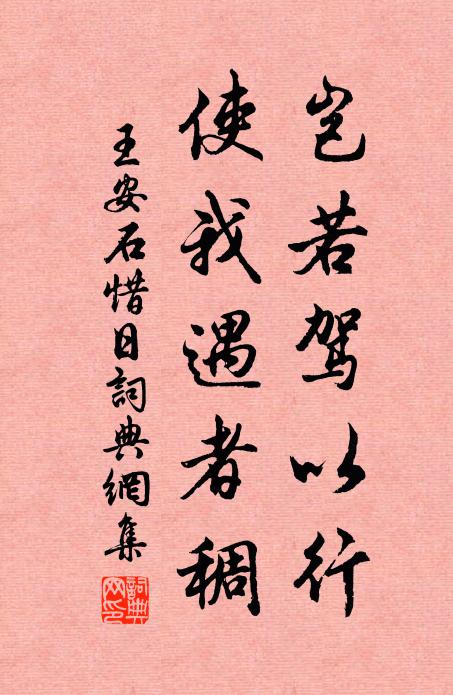 岂若驾以行
使我遇者稠
王安石惜日詞典網集
詞典
网印